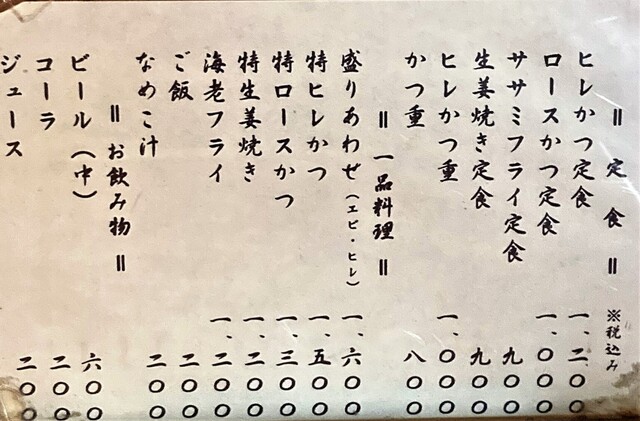 ＝ 定 食 ＝ ※税込み
ヒレかつ定食 一、二〇〇
ロースかつ定食 一、〇〇〇
ササミフライ定食 九〇〇
生姜焼き定食 九〇〇
ヒレかつ重 一、〇〇〇
かつ重 八〇〇
＝ 一品料理 ＝
盛りあわせ（エビ・ヒレ） 一、六〇〇
特ヒレかつ 一、五〇〇
特ロースかつ 一、三〇〇
特生姜焼き 一、二〇〇
海老フライ 一、二〇〇
ご飯 二〇〇
なめこ汁 二〇〇
＝ お飲み物 ＝
ビール（中） 六〇〇
コーラ 二〇〇
ジュース 二〇〇